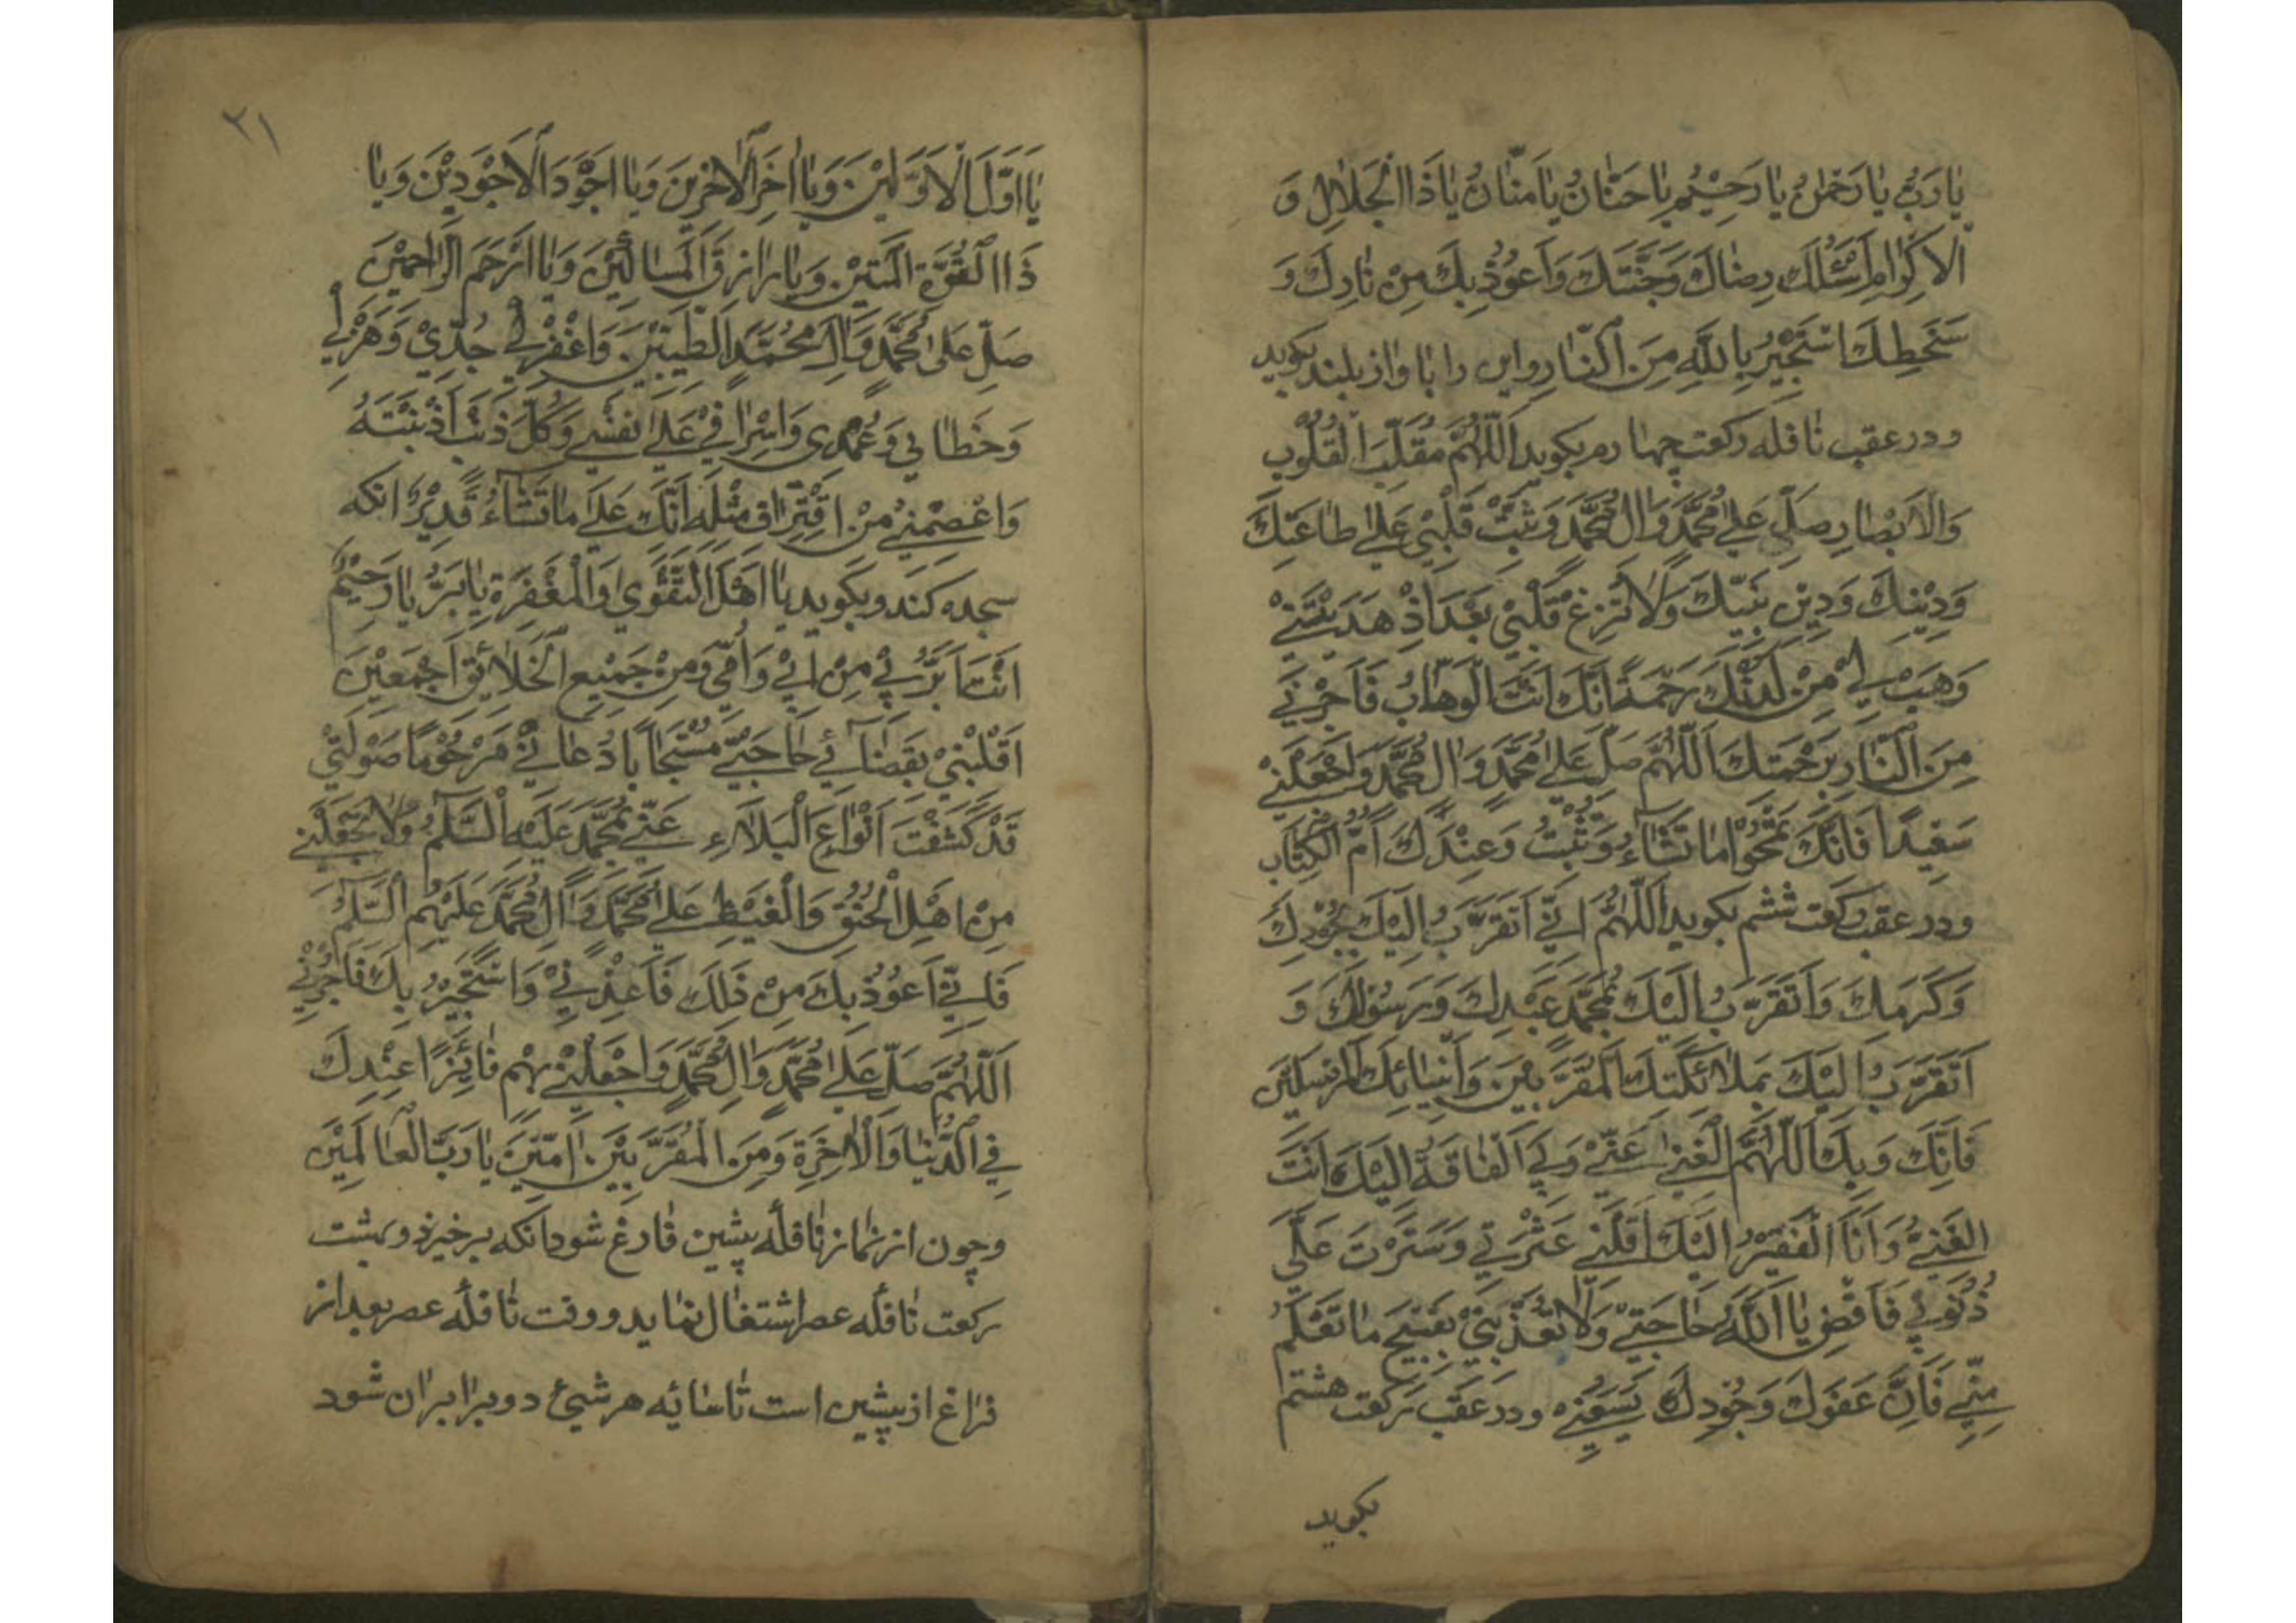 يٰا رَبُّ يٰا رَحْمٰنُ يٰا رَحِيْمُ يٰا حَنّٰانُ يٰا مَنّٰانُ يٰا ذَا الْجَلاٰلِ وَ
الْاَكِرٰامِ اَسْئَلُكَ رِضٰاكَ وَجَنَّتَكَ وَاَعُوْذُ بِكَ مِنْ نٰارِكَ وَ
سَخَطِكَ اَسْتَجِيْرُ بِاللّٰهِ مِنَ النّٰارِ واين را باواز بلند بكويد
ودر عقب نٰافله ركعت چهارم بكويد اَللّٰهُمَّ مُقَلِّبَ الْقُلُوْبِ
وَالْاَبْصٰارِ صَلِّ عَلىٰ مُحَمَّدٍ وَاٰلِ مُحَمَّدٍ وَثَبِّتْ قَلْبِيْ عَلىٰ طٰاعَتِكَ
وَدِيْنِكَ وَدِيْنِ نَبِيِّكَ وَلاٰ تُزِغْ قَلْبِيْ بَعْدَ اِذْ هَدَيْتَنِيْ
وَهَبْ لِيْ مِنْ لَدُنْكَ رَحْمَةً اِنَّكَ اَنْتَ الْوَهّٰابُ فَاَجِرْنِيْ
مِنَ النّٰارِ بِرَحْمَتِكَ اَللّٰهُمَّ صَلِّ عَلىٰ مُحَمَّدٍ وَاٰلِ مُحَمَّدٍ وَاجْعَلْنِيْ
سَعِيْدًا فَاِنَّكَ تَمْحُوْا مٰا تَشٰاۤءُ وَتُثْبِتُ وَعِنْدَكَ اُمُّ الْكِتٰابِ
ودر عقب ركعت ششم بكويد اَللّٰهُمَّ اِنِّيْ اَتَقَرَّبُ اِلَيْكَ بِجُوْدِكَ
وَكَرَمِكَ وَاَتَقَرَّبُ اِلَيْكَ بِمُحَمَّدٍ عَبْدِكَ وَرَسُوْلِكَ وَ
اَتَقَرَّبُ اِلَيْكَ بِمَلاٰئِكَتِكَ الْمُقَرَّبِيْنَ وَاَنْبِيٰائِكَ الْمُرْسَلِيْنَ
فَاِنَّكَ وَبِكَ اَللّٰهُمَّ الْغِنىٰ عَنِّيْ وَبِيَ الْفٰاقَةُ اِلَيْكَ اَنْتَ
الْغَنِيُّ وَاَنَا الْفَقِيْرُ اِلَيْكَ اَقَلْتَنِيْ عَثْرَتِيْ وَسَتَرْتَ عَلَيَّ
ذُنُوْبِيْ فَاقْضِ يٰا اَللّٰهُ حٰاجَتِيْ وَلاٰ تُعَذِّبْنِيْ بِقَبِيْحِ مٰا تَعْلَمُ
مِنِّيْ فَاِنَّ عَفْوَكَ وَجُوْدَكَ يَسَعُنِيْ ودر عقب ركعت هشتم
بكويد
٢١
يٰا اَوَّلَ الْاَوَّلِيْنَ وَيٰا اٰخِرَ الْاٰخِرِيْنَ وَيٰا اَجْوَدَ الْاَجْوَدِيْنَ وَيٰا
ذَا الْقُوَّةِ الْمَتِيْنِ وَيٰا رٰازِقَ الْمَسٰاكِيْنَ وَيٰا اَرْحَمَ الرّٰاحِمِيْنَ
صَلِّ عَلىٰ مُحَمَّدٍ وَاٰلِ مُحَمَّدٍ الطَّيِّبِيْنَ وَاغْفِرْ لِيْ جِدِّيْ وَهَزْلِيْ
وَخَطٰائِيْ وَعَمْدِيْ وَاِسْرٰافِيْ عَلىٰ نَفْسِيْ وَكُلَّ ذَنْبٍ اَذْنَبْتُهُ
وَاعْصِمْنِيْ مِنْ اِقْتِرٰافِ مِثْلِهِ اِنَّكَ عَلىٰ مٰا تَشٰاۤءُ قَدِيْرٌ انكه
سجده كند وبكويد يٰا اَهْلَ التَّقْوىٰ وَالْمَغْفِرَةِ يٰا بَرُّ يٰا رَحِيْمُ
اَنْتَ اَبَرُّ بِيْ مِنْ اَبِيْ وَاُمِّيْ وَمِنْ جَمِيْعِ الْخَلاٰئِقِ اَجْمَعِيْنَ
اَقْلِبْنِيْ بِقَضٰاۤئِيْ حٰاجَتِيْ مُسْتَجٰابًا دُعٰائِيْ مَرْحُوْمًا صَوْتِيْ
قَدْ كَشَفْتَ اَنْوٰاعَ الْبَلاٰۤءِ عَنِّيْ بِمُحَمَّدٍ عَلَيْهِ السَّلٰمُ وَلاٰ تَجْعَلْنِيْ
مِنْ اَهْلِ الْحَنَقِ وَالْغَيْظِ عَلىٰ مُحَمَّدٍ وَاٰلِ مُحَمَّدٍ عَلَيْهِمُ السَّلٰمُ
فَاِنِّيْ اَعُوْذُ بِكَ مِنْ ذٰلِكَ فَاَعِذْنِيْ وَاَسْتَجِيْرُ بِكَ فَاَجِرْنِيْ
اَللّٰهُمَّ صَلِّ عَلىٰ مُحَمَّدٍ وَاٰلِ مُحَمَّدٍ وَاجْعَلْنِيْ بِهِمْ فٰائِزًا عِنْدَكَ
فِي الدُّنْيٰا وَالْاٰخِرَةِ وَمِنَ الْمُقَرَّبِيْنَ اٰمِيْنَ يٰا رَبَّ الْعٰالَمِيْنَ
وچون از نماز نٰافله پيشين فٰارغ شود انكه برخيزد وبهشت
ركعت نٰافله عصر اشتغال نمايد ووقت نٰافله عصر بعد از
فراغ از پيشين است تٰا سٰايه هر شيئ دو برابر ان شود